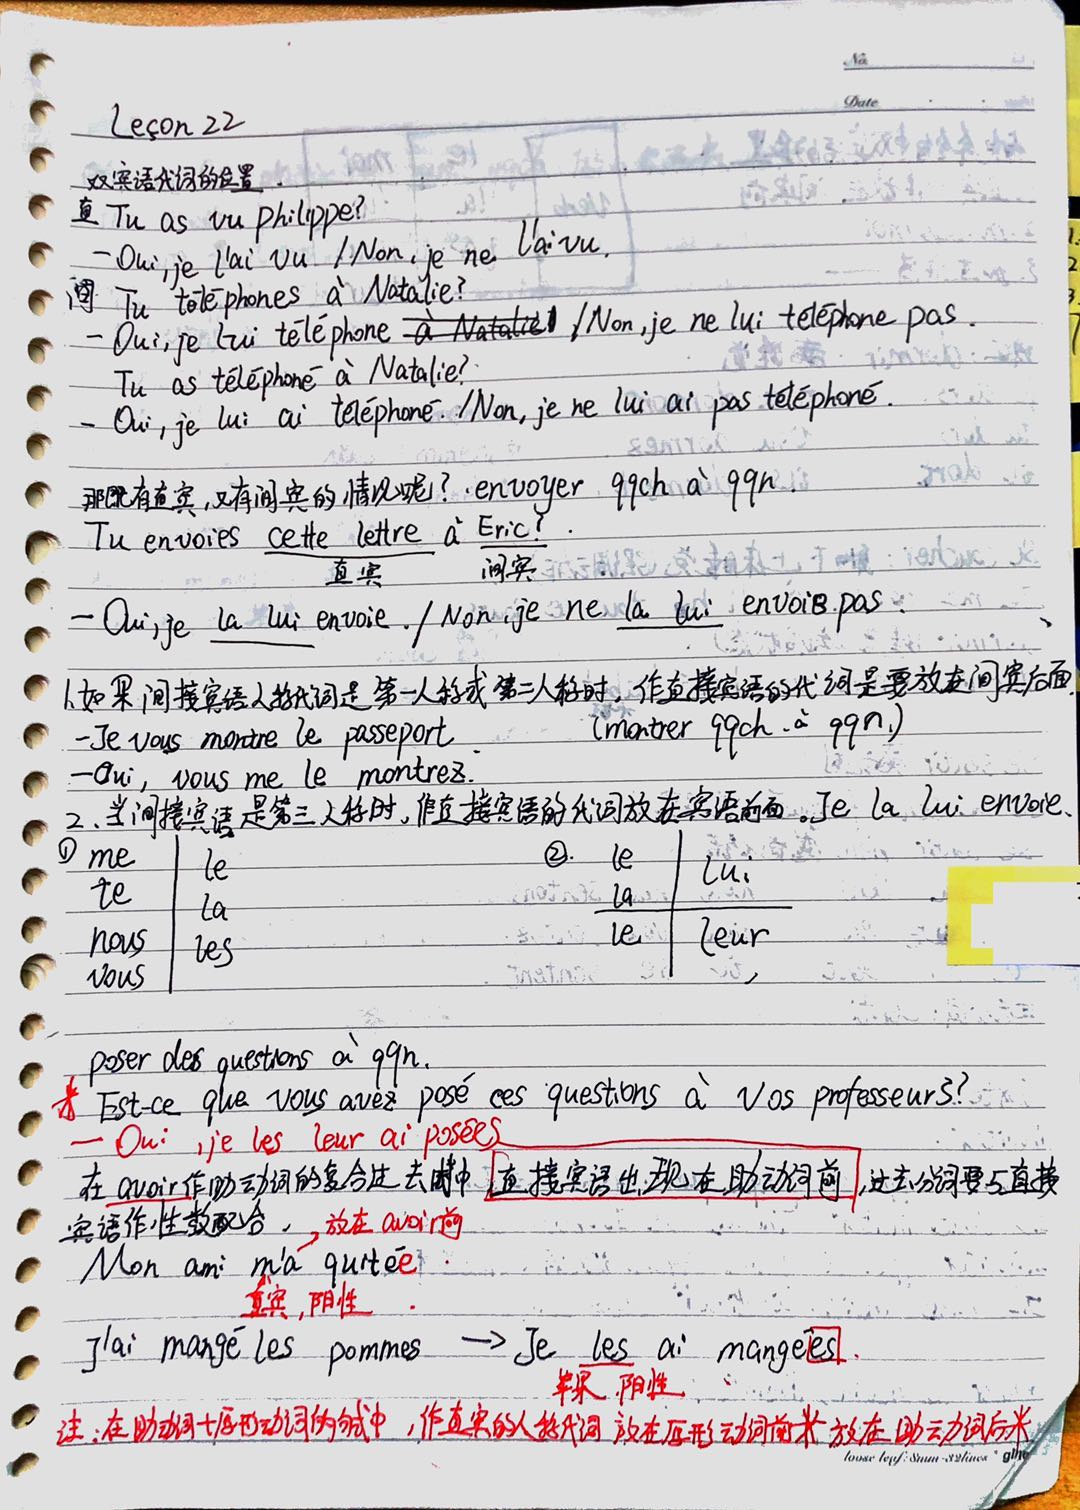 No.
Date
Leçon 22
双宾语代词的位置.
直 Tu as vu Philippe?
- Oui, je l'ai vu / Non, je ne l'ai vu.
间 Tu téléphones à Natalie?
- Oui, je lui téléphone à Natalie / Non, je ne lui téléphone pas.
Tu as téléphoné à Natalie?
- Oui, je lui ai téléphoné. / Non, je ne lui ai pas téléphoné.
那既有直宾,又有间宾的情况呢? envoyer qqch à qqn.
Tu envoies cette lettre à Eric?
直宾 间宾
- Oui, je la lui envoie. / Non, je ne la lui envoie pas.
1. 如果间接宾语人称代词是第一人称或第二人称时,作直接宾语的代词是要放在间宾后面
- Je vous montre le passeport (montrer qqch. à qqn.)
- Oui, vous me le montrez.
2、当间接宾语是第三人称时,作直接宾语的代词放在宾语前面。Je la lui envoie.
① me le ②. le lui
te la la
nous les le leur
vous
poser des questions à qqn.
Est-ce que vous avez posé ces questions à vos professeurs?
- Oui, je les leur ai posées
在avoir作助动词的复合过去时中 直接宾语出现在助动词前,过去分词要与直接
宾语作性数配合. 放在avoir前
Mon ami m'a quitée.
直宾,阴性.
J'ai mangé les pommes → Je les ai mangées.
苹果 阴性
注:在助动词+原形动词的句式中,作直宾的人称代词放在原形动词前米放在助动词后米
loose leaf: 8mm-32lines